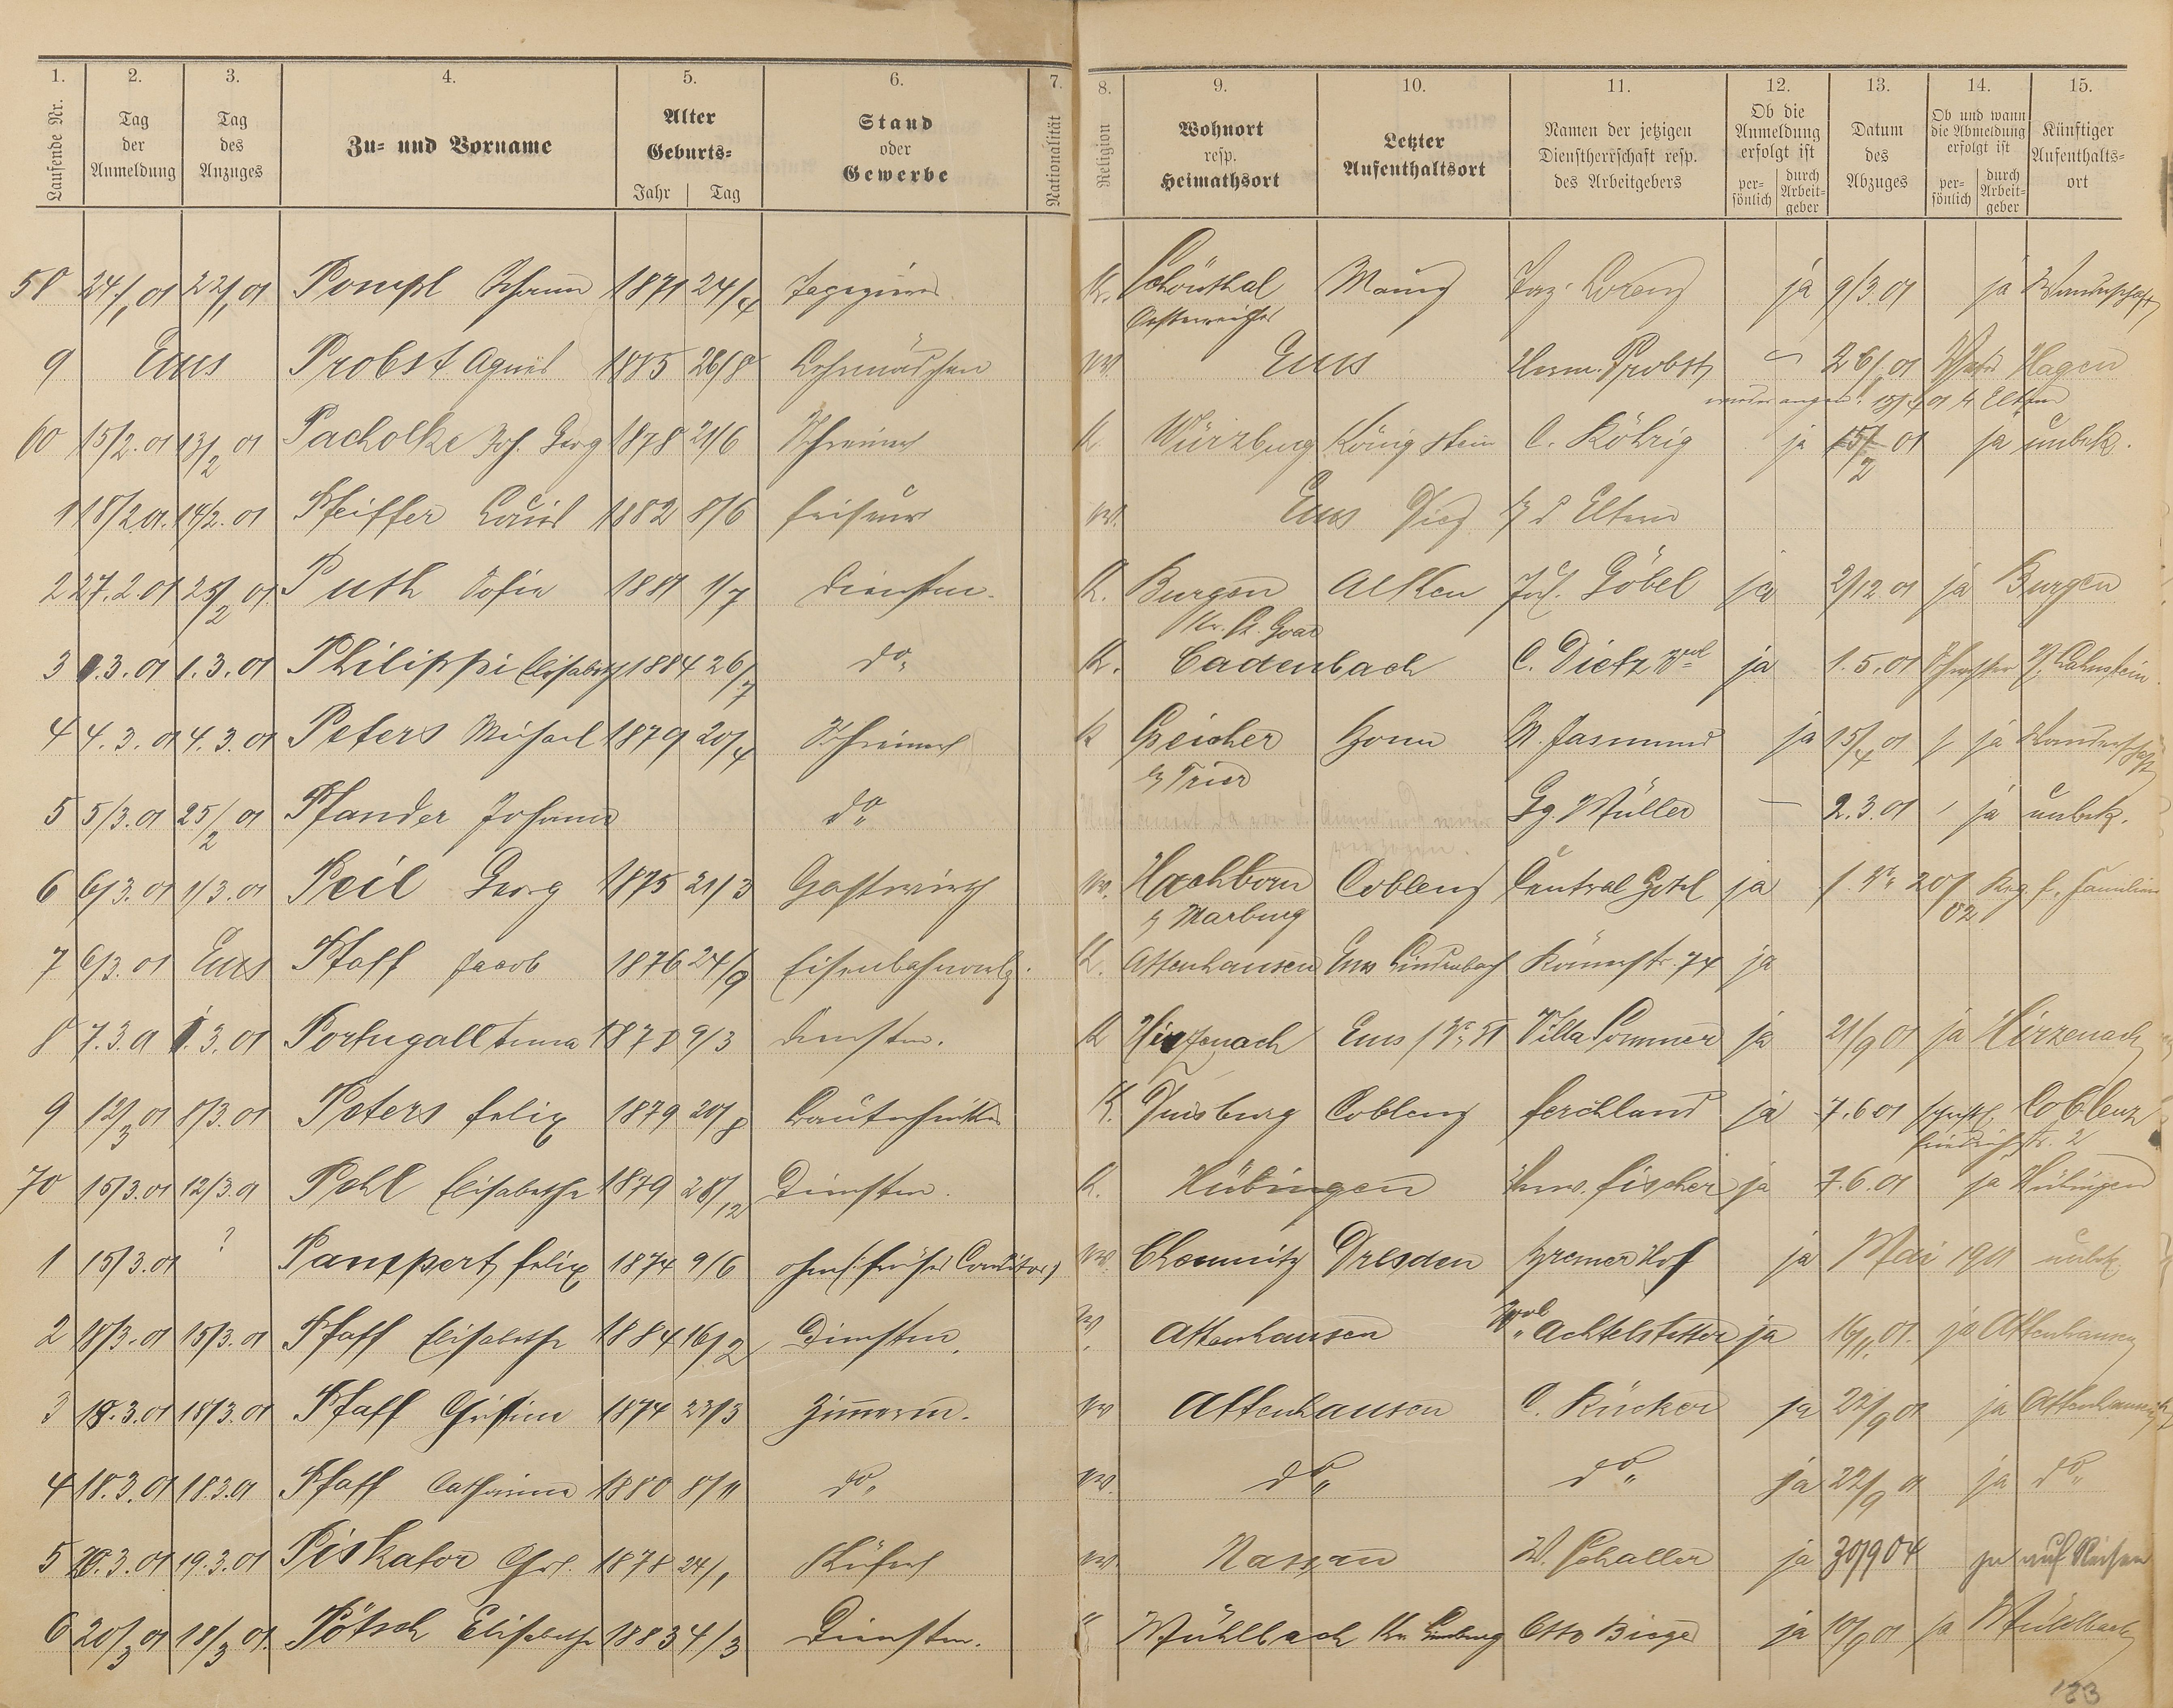 1. 2. 3. 4. 5. 6. 7. 8. 9. 10. 11. 12. 13. 14. 15.
Laufende Nr.
Tag der Anmeldung
Tag des Anzuges
Zu- und Vorname
Alter Geburts- Jahr Tag
Stand oder Gewerbe
Nationalität
Religion
Wohnort resp. Heimathsort
Letzter Aufenthaltsort
Namen der jetzigen Dienstherrschaft resp. des Arbeitgebers
Ob die Anmeldung erfolgt ist persönlich durch Arbeitgeber
Datum des Abzuges
Ob und wann die Abmeldung erfolgt ist persönlich durch Arbeitgeber
Künftiger Aufenthalts-ort
58 24/1 01 22/1 01 Pompl Johann 1871 24/4 Tapezirer K. Schönthal Mainz Lorenz ja 9/3.01 ja Wanderschaft
Oesterreich
9 Ems Probst Agnes 1885 28/8 Lehrmädchen Ems Herm. Probst 26/1 01 Hagen
15/4 01 Eltern
60 15/2.01 13/2 01 Pacholke Joh. Georg 1878 21/6 Schreiner K Würzburg Königstein C. Röhrig ja 15/2 01 ja unbek.
1 18/2 01. 14/2.01 Pfeiffer Louis 1882 8/6 Friseur Ems Diez Eltern
2 27.2.01 25/2 01. Puth Sofie 1881 1/7 Dienstm. K. Burgen Alken Jos. Göbel ja 2/12.01 ja Burgen
Kr. St. Goar
3 1.3.01 1.3.01 Philippi Elisabeth 1884 26/7 do K. Cadenbach C. Dietz Wwe ja 1.5.01 N. Lahnstein
4 4.3.01 4.3.01 Peters Michael 1879 20/4 Schreiner K Speicher Bonn M. Jasmund ja 15/4 01 ja Wanderschaft
b/ Trier
5 5/3.01 25/2 01 Pfander Johann do Gg. Müller — 2.3.01 ja unbek.
verzogen.
6 6/3.01 1/3.01 Peil Georg 1875 21/3 Gastwirth Hachborn Coblenz Central Hotel ja 20/02 Familien
b/ Marburg
7 6/3.01 Ems Pfaff Jacob 1876 24/9 K. Attenhausen Ems Lindenbach Römerstr. 74 ja
8 7.3.01 1.3.01 Portugall Anna 1878 9/3 Dienstm. K Hirzenach Ems Villa Sommer ja 21/9 01 ja Hirzenach
9 12/3 01 8/3.01 Peters Felix 1879 20/8 Bautechniker K. Duisburg Coblenz Ferchland ja 7.6 01 Coblenz
Friedrichstr. 2
70 15/3.01 12/3.01 Pohl Elisabethe 1879 28/12 Dienstm. K. Hübingen Herm. Fischer ja 7.6.01 ja Hübingen
1 15/3.01 ? Pampert Felix 1874 9/6 ohne (früher Conditor) Chemnitz Dresden Bremer Hof ja Mai 1901 unbek.
2 18/3.01 15/3.01 Pfaff Elisabethe 1884 16/2 Dienstm. Attenhausen Wwe Achtelstetter ja 16/11.01. ja Attenhausen
3 18.3.01 18/3.01 Pfaff Christine 1874 23/3 Zimmerm. Attenhausen C. Rücker ja 22/9 01 ja Attenhausen
4 18.3.01 18.3.01 Pfaff Catharina 1880 8/11 do do do ja 22/9 01 ja do
5 20.3.01 19.3.01 Piskator Chr. 1878 24/1 Küfer Nassau W. Schaller ja 30/9 04 ja auf Reisen
6 20/3 01 18/3 01. Pötsch Elisabethe 1883 4/3 Dienstm. " Mühlbach Kr. Limburg Otto Biege ja 10/9 01 ja Mühlbach
133